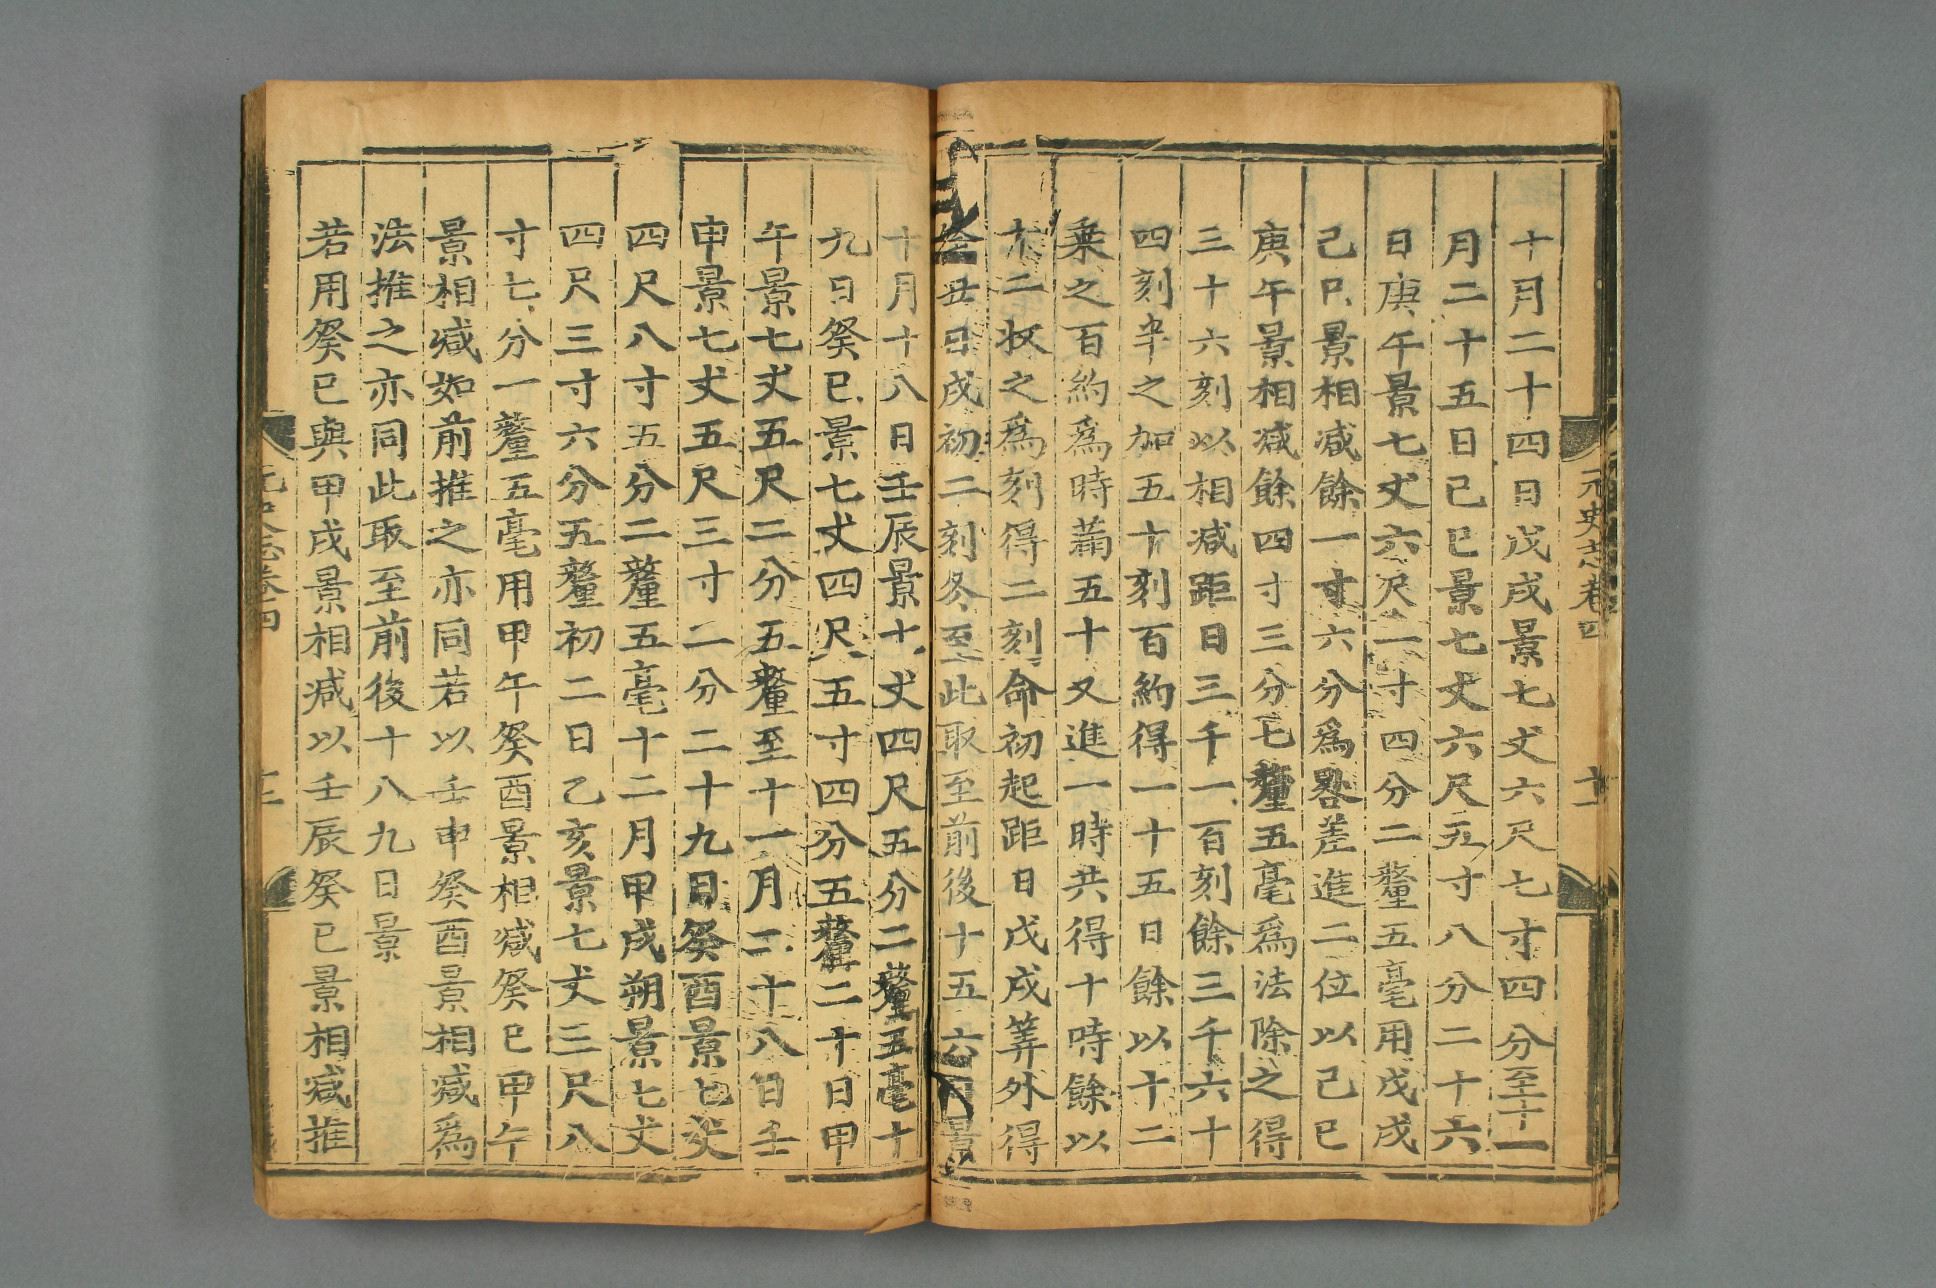 元史志卷四
十一
十月二十四日戊戌景七丈六尺七寸四分至十一
月二十五日己巳景七丈六尺五寸八分二十六
日庚午景七丈六尺一寸四分二釐五毫用戊戌
己巳景相减餘一寸六分爲晷差進二位以己巳
庚午景相减餘四寸三分七釐五毫爲法除之得
三十六刻以相减距日三千一百刻餘三千六十
四刻半之加五十刻百約得一十五日餘以十二
乗之百約爲時滿五十又進一時共得十時餘以
十二收之爲刻得二刻命初起距日戊戌筭外得
丑日戌初二刻冬至此取至前後十五六日景
十月十八日壬辰景七丈四尺五分二釐五毫十
九日癸巳景七丈四尺五寸四分五釐二十日甲
午景七丈五尺二分五釐至十一月二十八日壬
申景七丈五尺三寸二分二十九日癸酉景七丈
四尺八寸五分二釐五毫十二月甲戌朔景七丈
四尺三寸六分五釐初二日乙亥景七丈三尺八
寸七分一釐五毫用甲午癸酉景相减癸巳甲午
景相减如前推之亦同若以壬申癸酉景相减爲
法推之亦同此取至前後十八九日景
若用癸巳與甲戌景相减以壬辰癸巳景相减推
元史志卷四